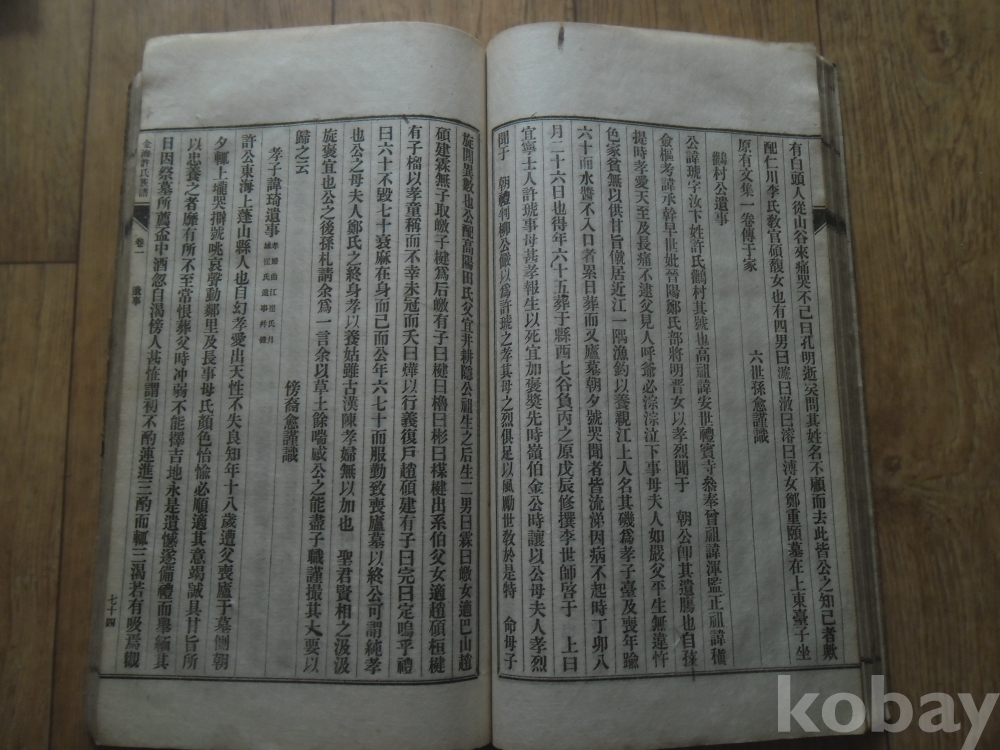 有白頭人從山谷來痛哭不已曰孔明逝矣問其姓名不顧而去此皆公之知己者歟
配仁川李氏敎官碩馥女也有四男曰 曰澈曰溶曰溥女鄭重頤墓在上東臺子坐
原有文集一卷傳于家
六世孫愈謹識
鸛村公遺事
公諱琥字汝 姓許氏鸛村其號也高祖諱安世禮賓寺參奉曾祖諱渾監正祖諱稱
僉樞考諱承幹早世妣晉陽鄭氏部將明晋女以孝烈聞于 朝公卽其遺腸也自孩
提時孝愛天至及長痛不逮父見人呼爺必淙淙泣下事母夫人如嚴父平生無違忤
色家貧無以供甘旨僦居近江一隅漁釣以養親江上人名其磯爲孝子臺及喪年踰
六十而水醬不入口者累日葬而又廬墓朝夕號哭聞者皆流涕因病不起時丁卯八
月二十六日也得年六十五葬于縣西七谷負丙之原戊辰修撰李世師啓于 上曰
宜寧士人許琥事母甚孝報生以死宜加褒獎先時嶺伯金公時讓以公母夫人孝烈
聞于 朝禮判柳公儼以爲許琥之孝其母之烈俱足以風勵世敎於是特 命母子
旋閭異數也公配高陽田氏父宜井耕隱公祖生之后生二男曰霖曰皦女適巴山趙
碩建霖無子取皦子楗爲后皦有子曰楗曰櫓曰彬曰楳楗出系伯父女適趙碩桓楗
有子榴以孝童稱而不幸未冠而夭曰燁以行義復戶趙碩建有子曰完曰定嗚乎禮
曰六十不毁七十衰麻在身而己而公年六七十而服勤致喪廬墓以終公可謂純孝
也公之母夫人鄭氏之終身孝以養姑雖古漢陳孝婦無以加也 聖君賢相之汲汲
旋褒宜也公之後孫札請余爲一言余以草土餘喘感公之能盡子職謹撮其大要以
歸之云
傍裔愈謹識
孝子諱琦遺事
許公東海上蓬山縣人也自幼孝愛出天性不失良知年十八歲遭父喪廬于墓側朝
夕輒上壠哭擗號咷哀聲動鄰里及長事母氏顏色怡愉必順適其意竭誠具甘旨所
以忠養之者靡有所不至常恨葬父時冲弱不能擇吉地永是遺懷遂備禮而舉緬其
日因祭墓所薦盃中酒忽自渴傍人甚恠謂初不酌蓮進三酌而輒三渴若有吸焉觀
金海許氏族譜
卷一
遺事
七十四
kobay